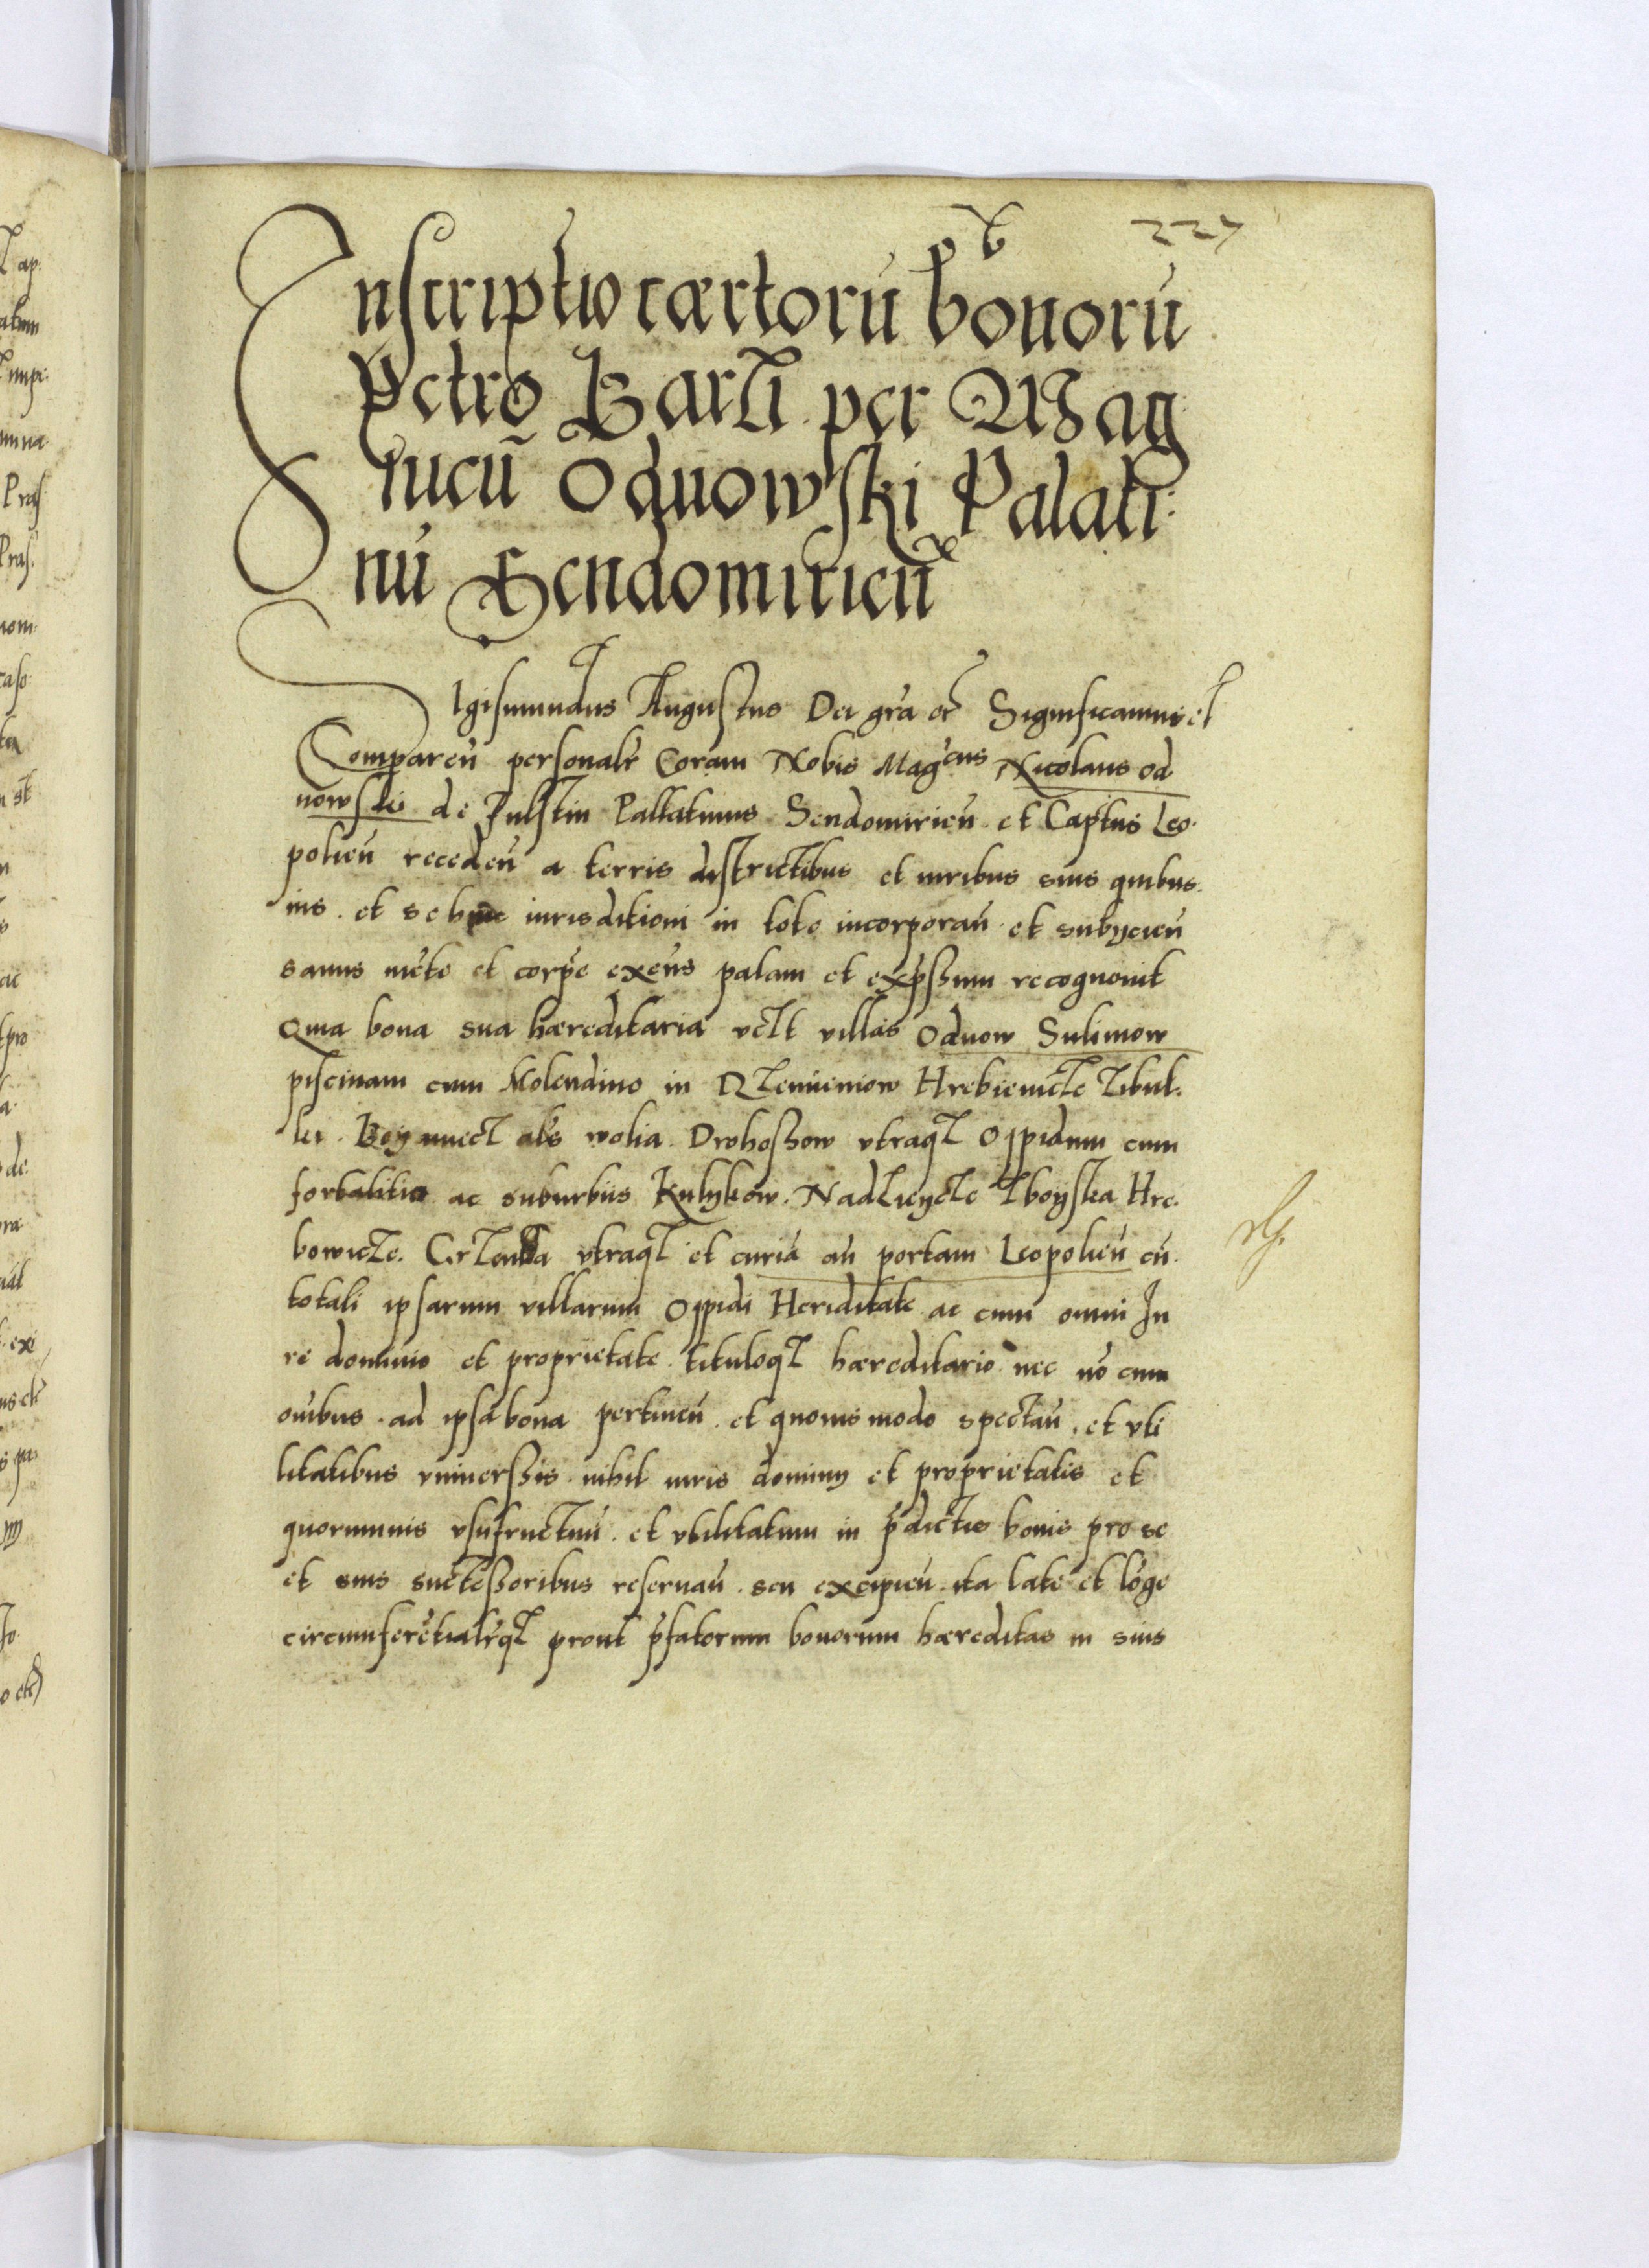 227
Inscriptio cærtorū bonorū
Petro Barzi per Mag
nicū Odnowski Palati:
nū Sendomirien̄
Sigismundus Augustus Dei gr̃a etc̃ Significamus etc
Comparen̄ personalr̃ Coram Nobis Mag^cus Nicolaus Od
nowski de Fulstin Pallatinus Sendomirien̄ et Captus Leo.
polien̄ receden̄ a terris districtibus et iuribus suis quibus.
uis. et se huic iurisditioni in toto incorporan̄ et subijcien̄
sanus mẽte et corpe exẽns palam et expssum recognouit
Quia bona sua hæreditaria vclt villas Odnow Sulimow
piscinam cum Molendino in Hrebienicze
als wolia Drohoszow vtraqz Oppidum cum
fortalitio ac suburbiis Kulykow. Nadzieycze Zboyska Hre.
bowicze. vtraqz et curiā an̄ portam Leopolien̄ cū
totali ipsarum villarum Oppidi Heriditate ac cum omni Iu
re dominio et proprietate tituloqz hæreditario nec nō cum
oi̅bus ad ipsa bona pertinen̄ et quouismodo spectan̄. et vti
litatibus vniuerssis nihil iuris dominij et proprietatis et
quorumuis vsufructuū et vtilitatum in p̄dictis bonis pro se
et suis suctessoribus reseruan̄ seu excipien̄ ita late et lōge
circumferẽtialr̃qz prout p̄fatorum bonorum hæreditas in suis